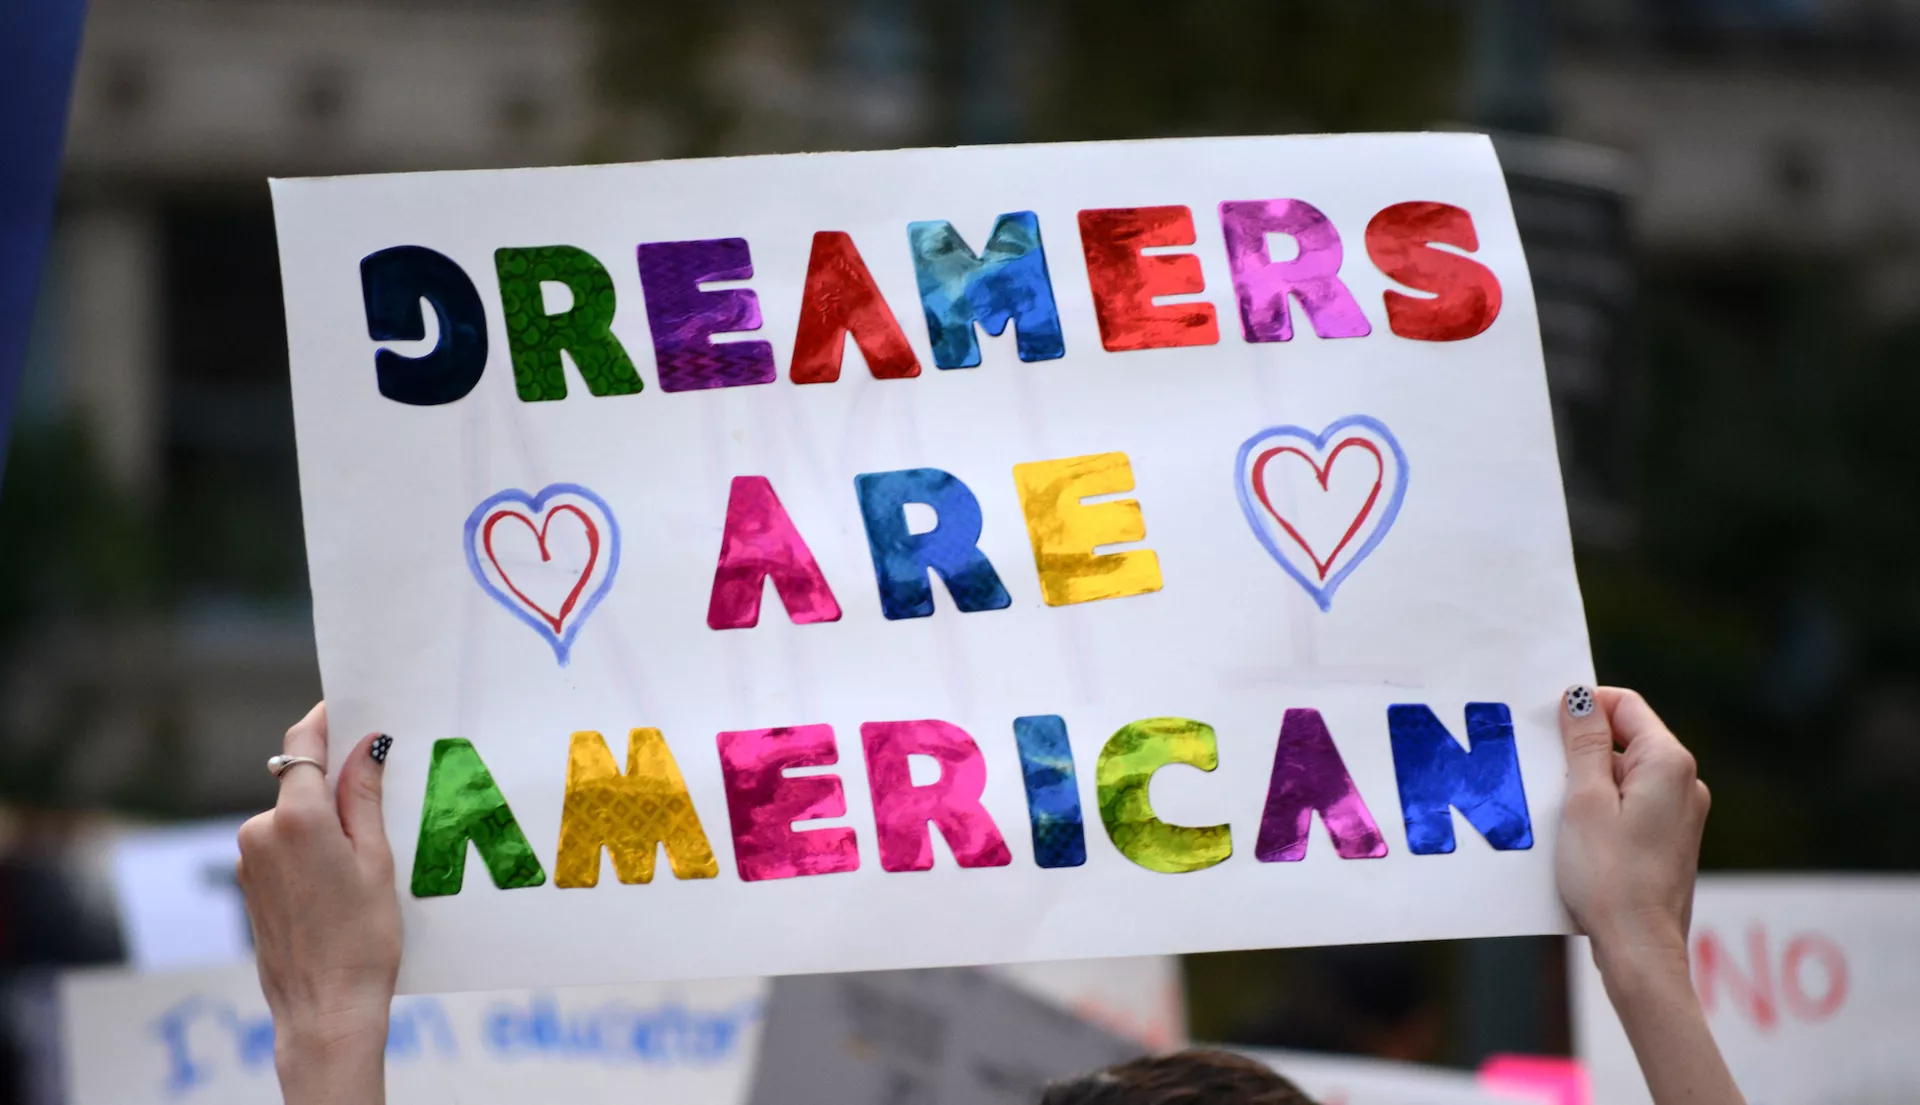 DREAMERS
ARE
AMERICAN
I'm an educator
NO